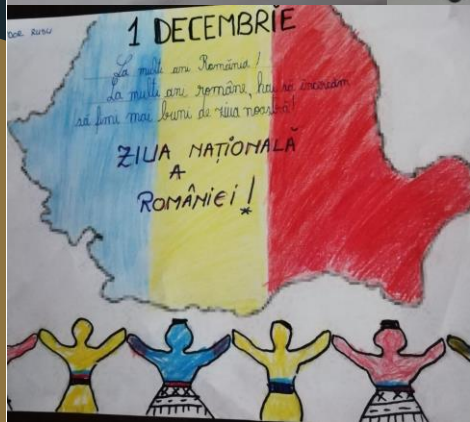 1 DECEMBRIE
RUSU
La mulți ani România!
La mulți ani române, hai să încercăm
să fim mai buni de ziua noastră!
ZIUA NAȚIONALĂ
A
ROMÂNIEI!